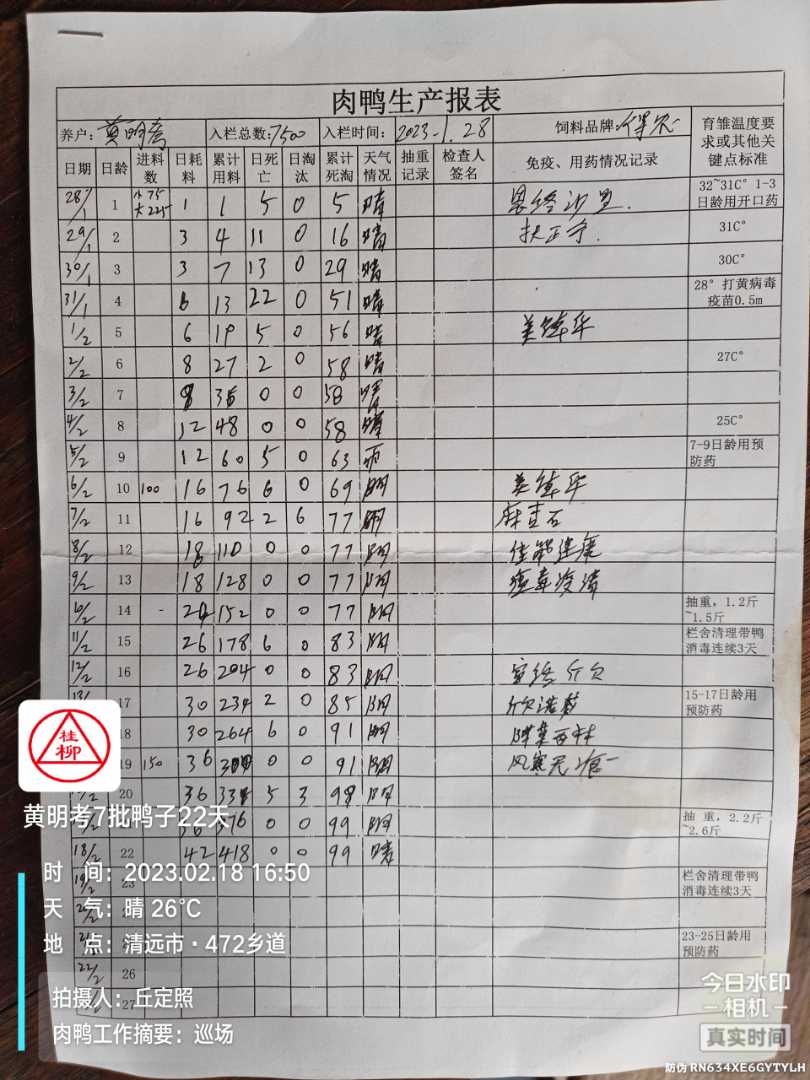 肉鸭生产报表
养户：黄明考 入栏总数：7500 入栏时间：2023-1.28 饲料品牌： 育雏温度要求或其他关键点标准
日期 日龄 进料数 日耗料 累计用料 日死亡 日淘汰 累计死淘 天气情况 抽重记录 检查人签名 免疫、用药情况记录
28/1 1 小75 大225 1 1 5 0 5 晴 32~31C° 1-3日龄用开口药
29/1 2 3 4 11 0 16 晴 31C°
30/1 3 3 7 13 0 29 晴 30C°
31/1 4 6 13 22 0 51 晴 28° 打黄病毒疫苗0.5m
1/2 5 6 19 5 0 56 晴
2/2 6 8 27 2 0 58 晴 27C°
3/2 7 8 35 0 0 58 晴
4/2 8 12 48 0 0 58 晴 25C°
5/2 9 12 60 5 0 63 雨 7-9日龄用预防药
6/2 10 100 16 76 6 0 69 阴
7/2 11 16 92 2 6 77 阴
8/2 12 18 110 0 0 77 阴
9/2 13 18 128 0 0 77 阴
10/2 14 - 24 152 0 0 77 阴 抽重，1.2斤~1.5斤
11/2 15 26 178 6 0 83 阴 栏舍清理带鸭消毒连续3天
12/2 16 26 204 0 0 83 阴
13/2 17 30 234 2 0 85 阴 15-17日龄用预防药
18 30 264 6 0 91 阴
19 150 36 300 0 0 91 阴
20 36 5 3 阴
36 376 0 0 99 阴 抽 重，2.2斤~2.6斤
18/2 22 42 418 0 0 99 晴
19/2 23 栏舍清理带鸭消毒连续3天
23-25日龄用预防药
22/2 26
27
桂柳
黄明考7批鸭子22天
时 间：2023.02.18 16:50
天 气：晴 26℃
地 点：清远市·472乡道
拍摄人：丘定照
肉鸭工作摘要：巡场
今日水印
相机
真实时间
防伪 RN634XE6GYTYLH